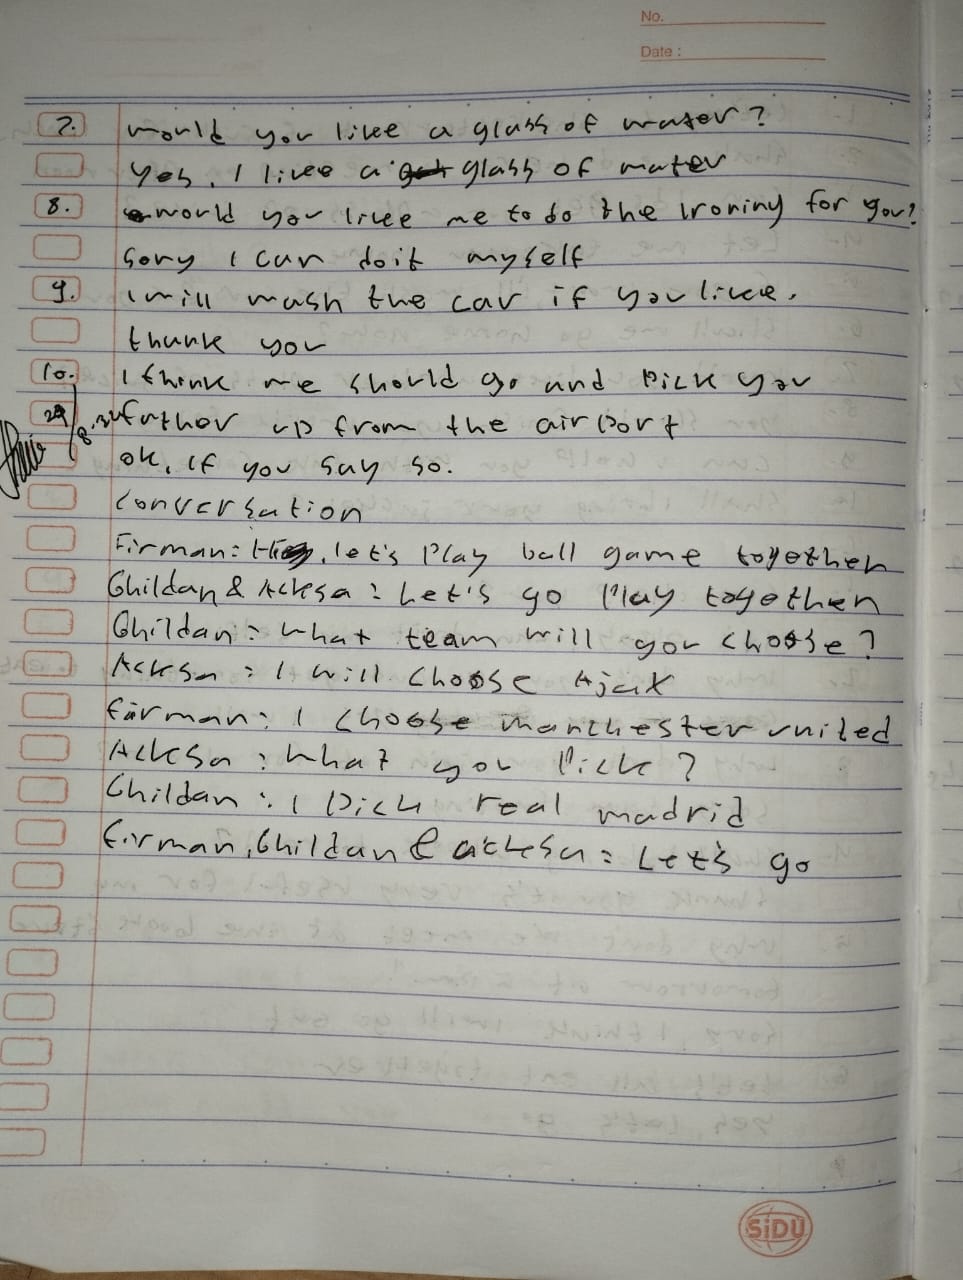 No.
Date :
7. would you like a glass of water?
Yes, I like a glass of water
8. would you like me to do the ironing for you?
Sory I can do it myself
9. I will wash the car if you like.
thank you
10. I think we should go and pick you
father up from the airport
ok, if you say so.
Conversation
Firman: let's Play ball game together
Ghildan & Acksa : Let's go Play together
Ghildan : what team will you choose?
Acksa : I will choose Ajax
Firman : I choose manchester united
Acksa : what you Pick?
Ghildan : I Pick real madrid
Firman, Ghildan & acksa : Let's go
SiDU